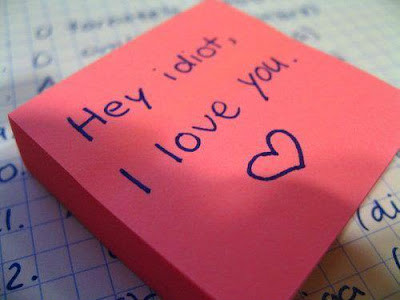 Hey idiot,
I love you.
1.
2.